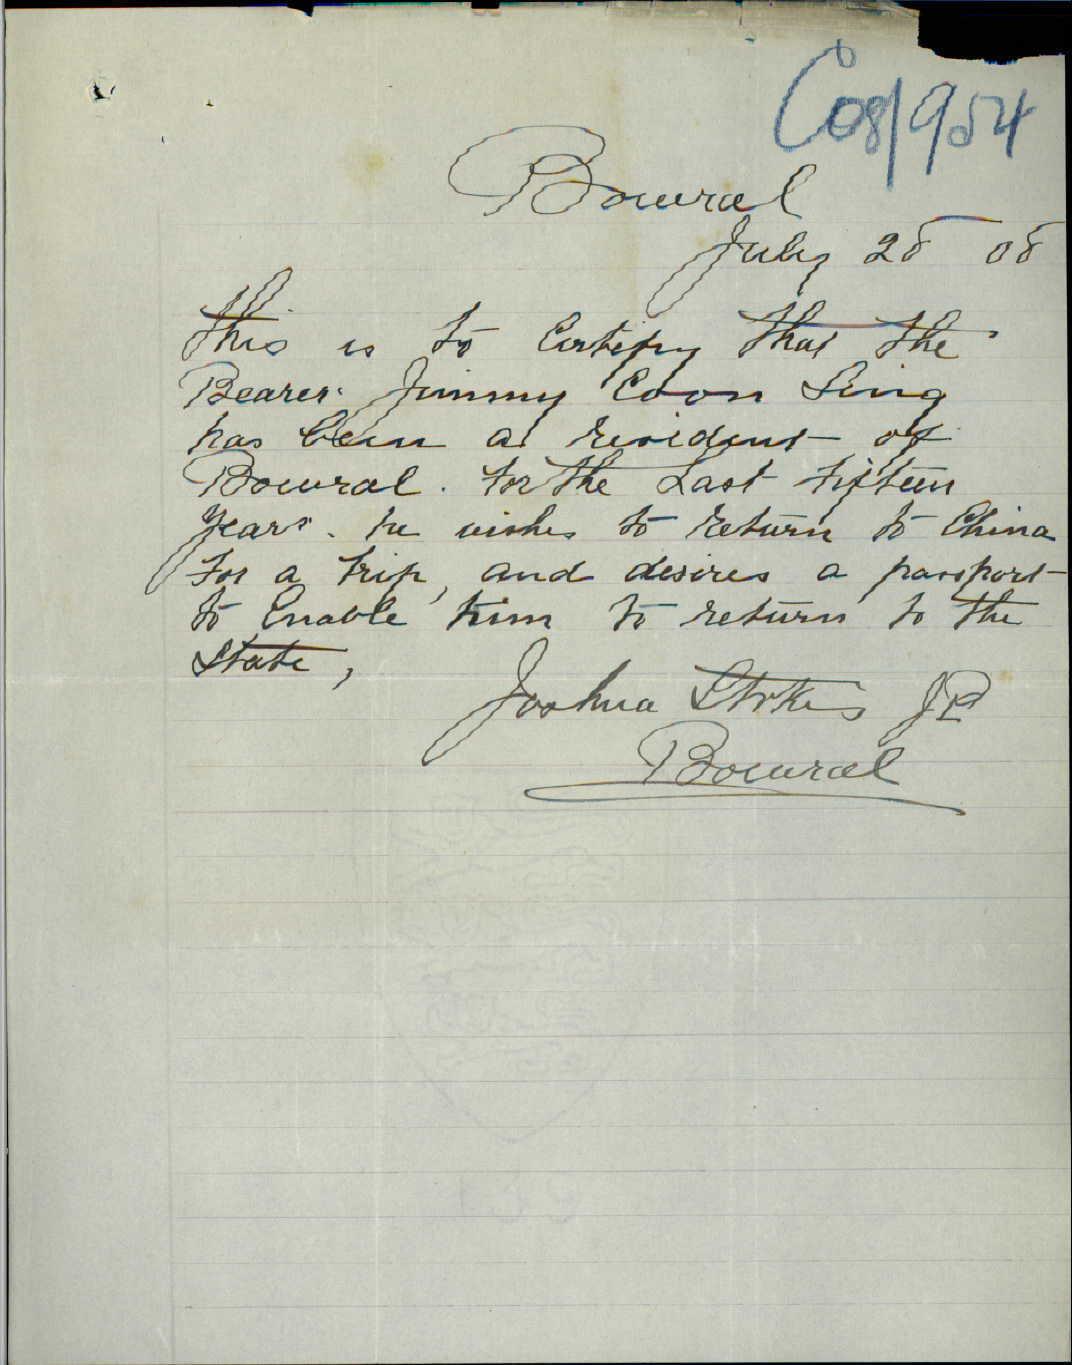 C08/954
Bowral
July 28 08
This is to Certify that the
Bearer. Jimmy Coon Sing
has been a resident of
Bowral. for the Last fifteen
years. he wishes to return to China
for a trip, and desires a passport
to Enable him to return to the
State,
Joshua Stokes JP
Bowral